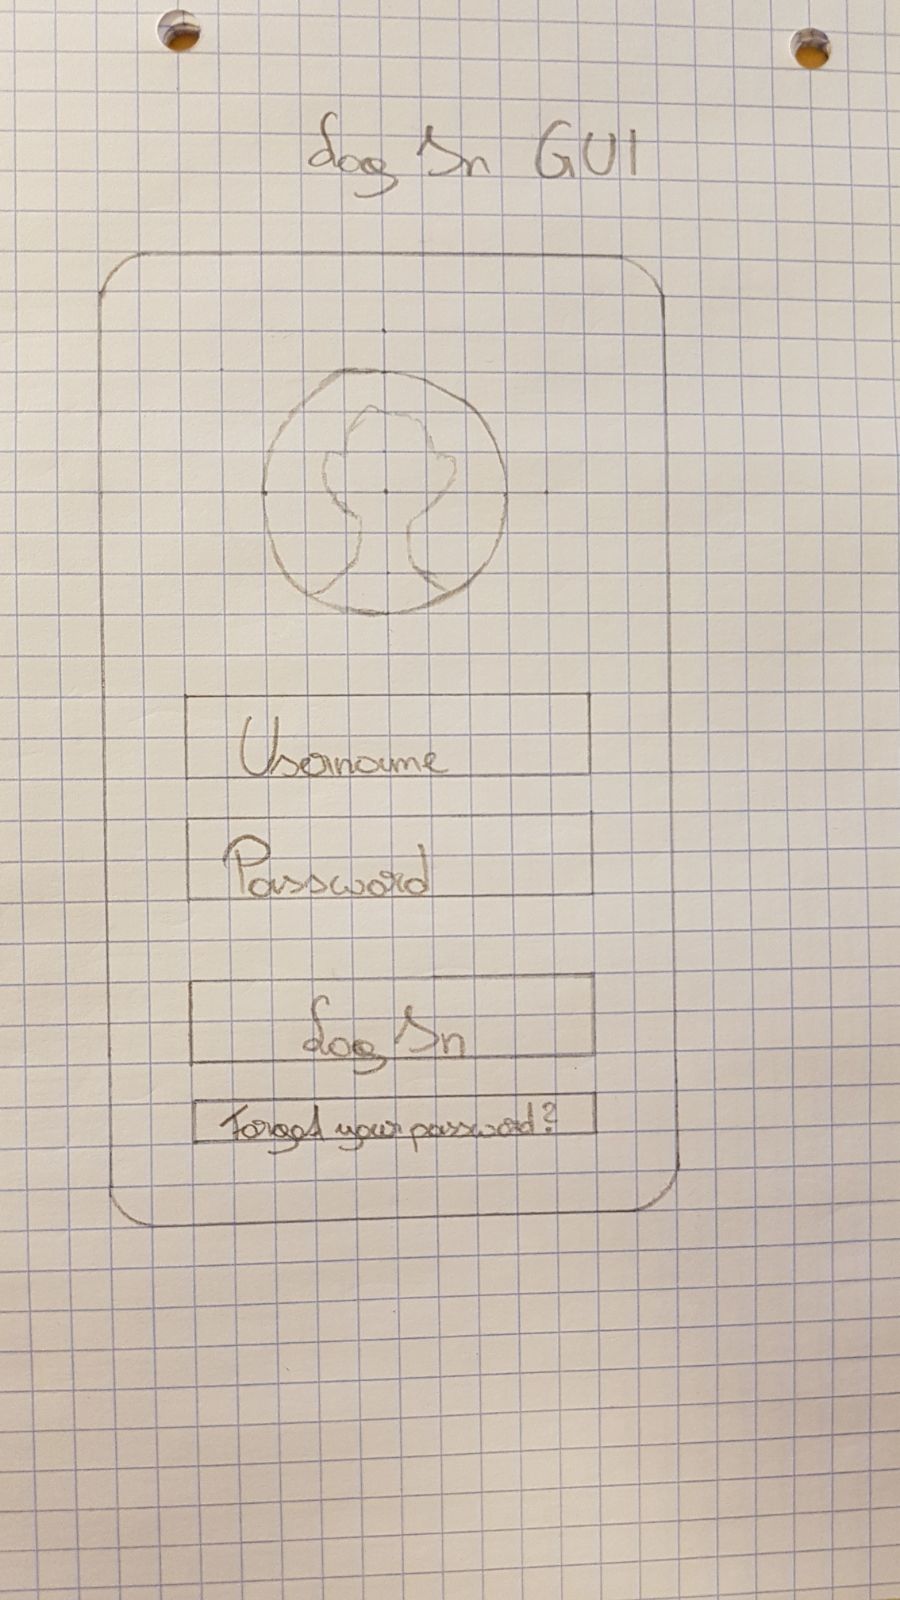 Log In GUI
Username
Password
Log In
Forgot your password?